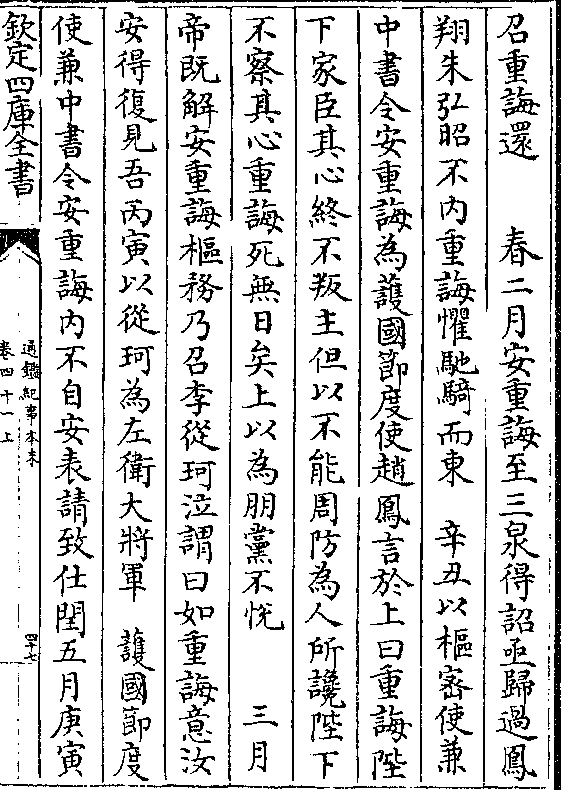 召重誨還　　春二月安重誨至三泉得詔亟歸過鳳
翔朱弘昭不内重誨懼馳騎而東　辛丑以樞密使兼
中書令安重誨為護國節度使趙鳳言於上曰重誨陛
下家臣其心終不叛主但以不能周防為人所讒陛下
不察其心重誨死無日矣上以為朋黨不悦　　三月
帝既解安重誨樞務乃召李從珂泣謂曰如重誨意汝
安得復見吾丙寅以從珂為左衛大將軍　護國節度
使兼中書令安重誨内不自安表請致仕閏五月庚寅
欽定四庫全書
通鑑紀事本末
卷四十一上
四十七